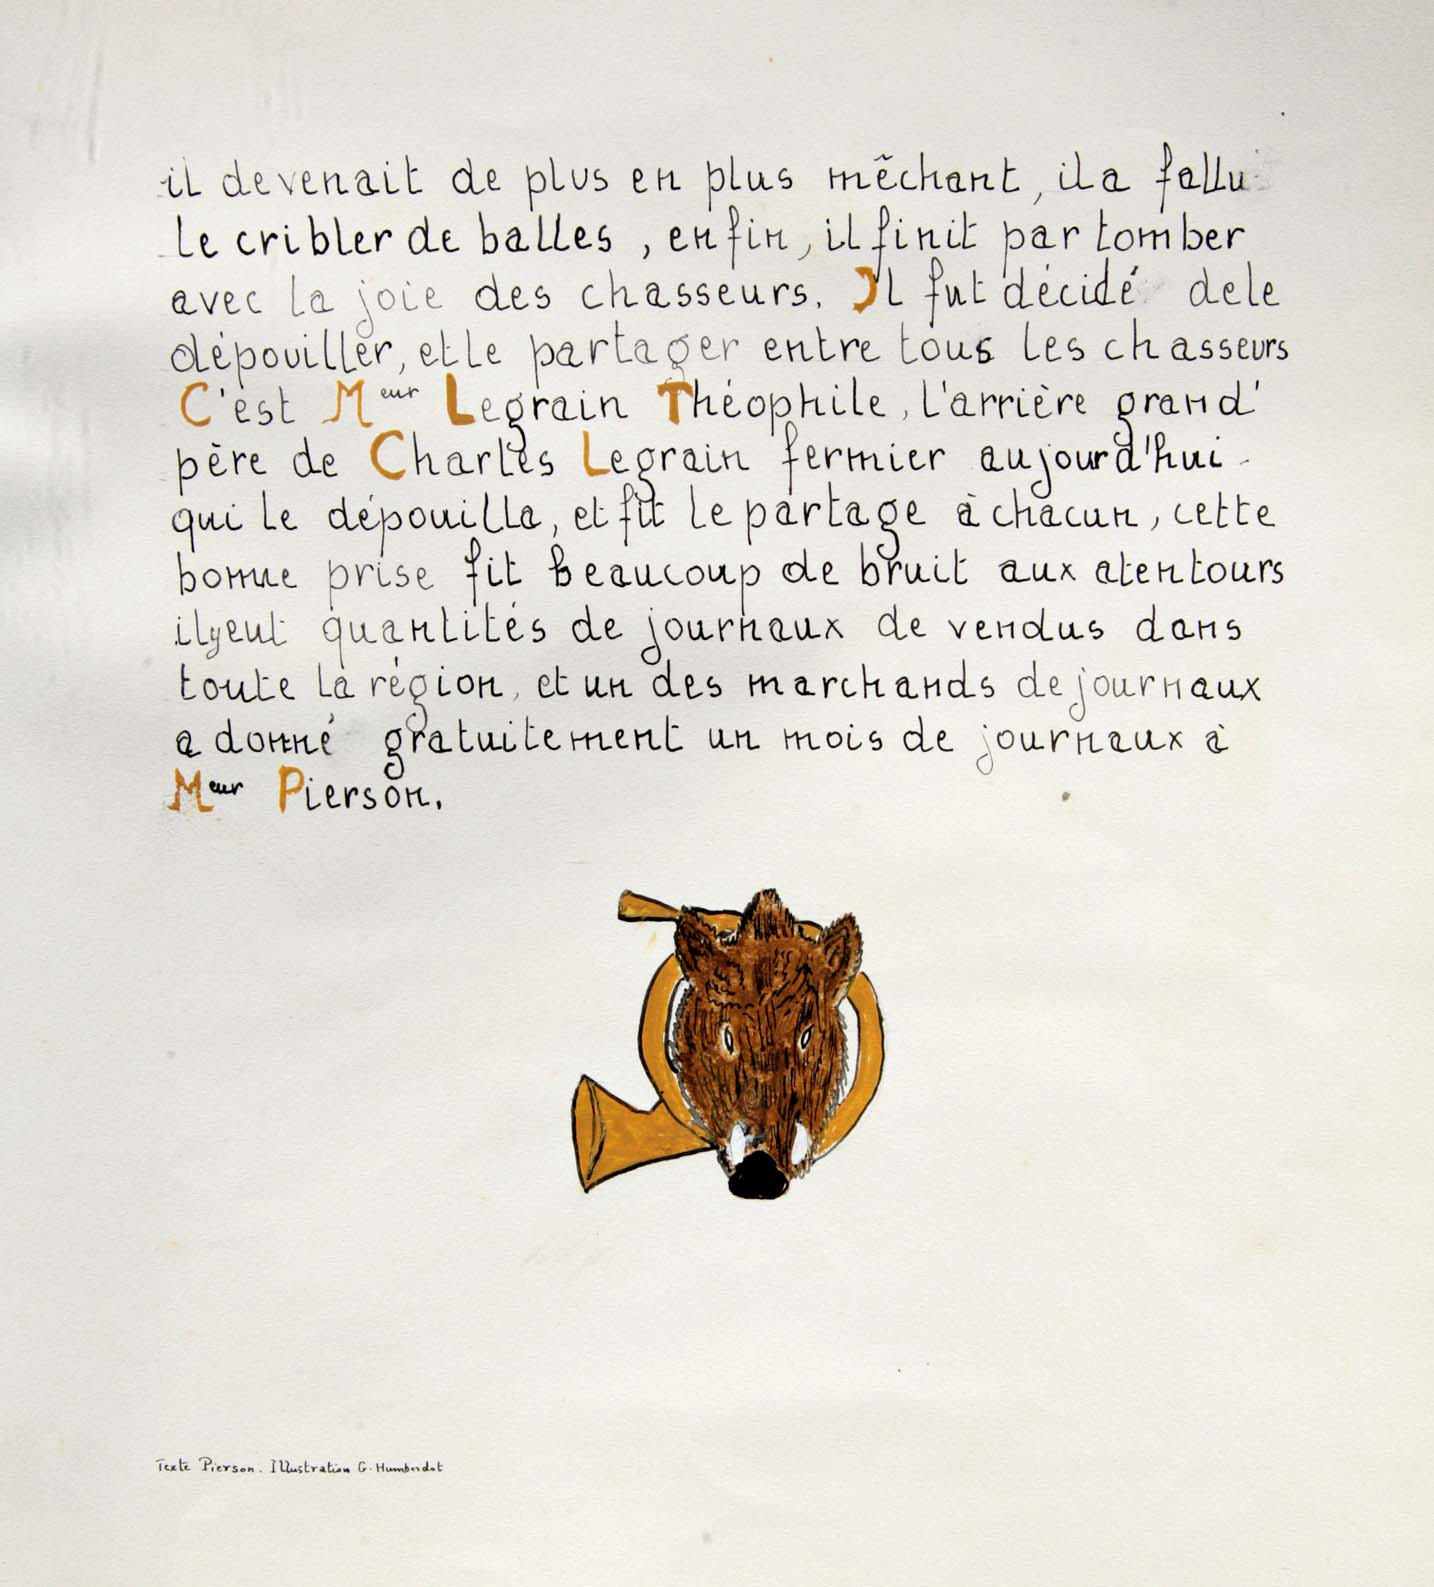 il devenait de plus en plus mêchant, il a fallu
le cribler de balles, enfin, il finit par tomber
avec la joie des chasseurs. Il fut décidé de le
dépouiller, et le partager entre tous les chasseurs
C'est Meur Legrain Théophile, l'arrière grand'
père de Charles Legrain fermier aujourd'hui
qui le dépouilla, et fit le partage à chacun, cette
bonne prise fit beaucoup de bruit aux alentours
il y eut quantités de journaux de vendus dans
toute la région, et un des marchands de journaux
a donné gratuitement un mois de journaux à
Meur Pierson.
Texte Pierson. Illustration G. Humberdot